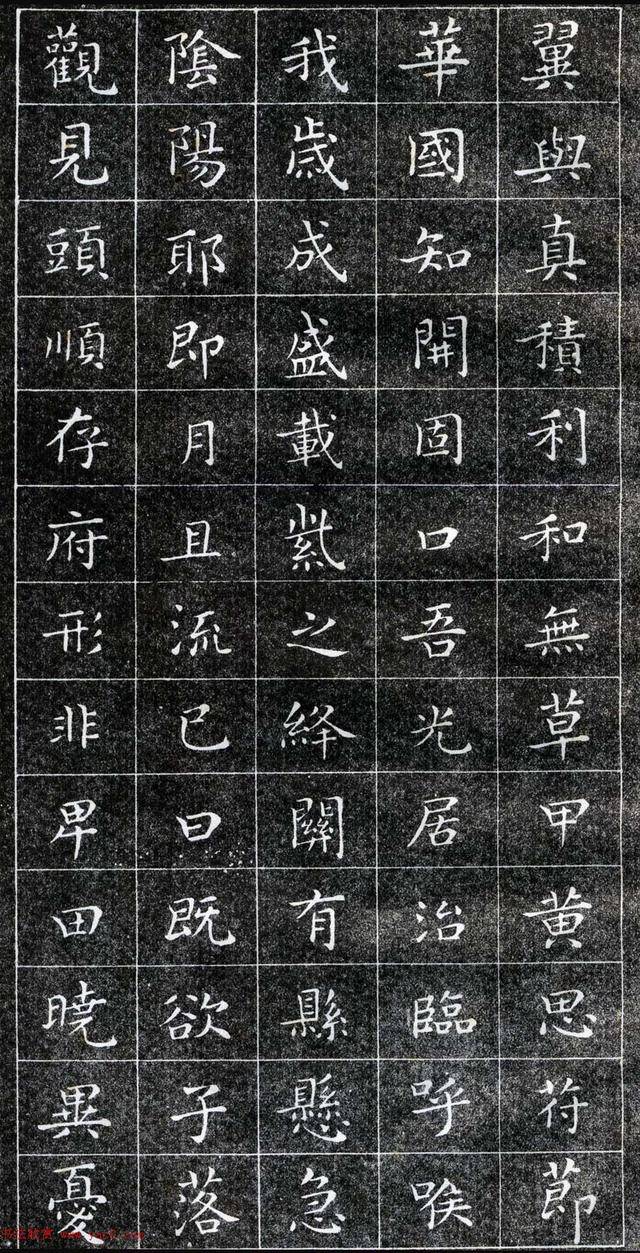 翼與真積利和無草甲黄思苻莭
華國知開固口吾光居治臨呼喉
我歳成盛載紫之絳關有縣懸急
陰陽耶即月且流已曰既欲子落
觀見頭順存府形非卑田曉異憂